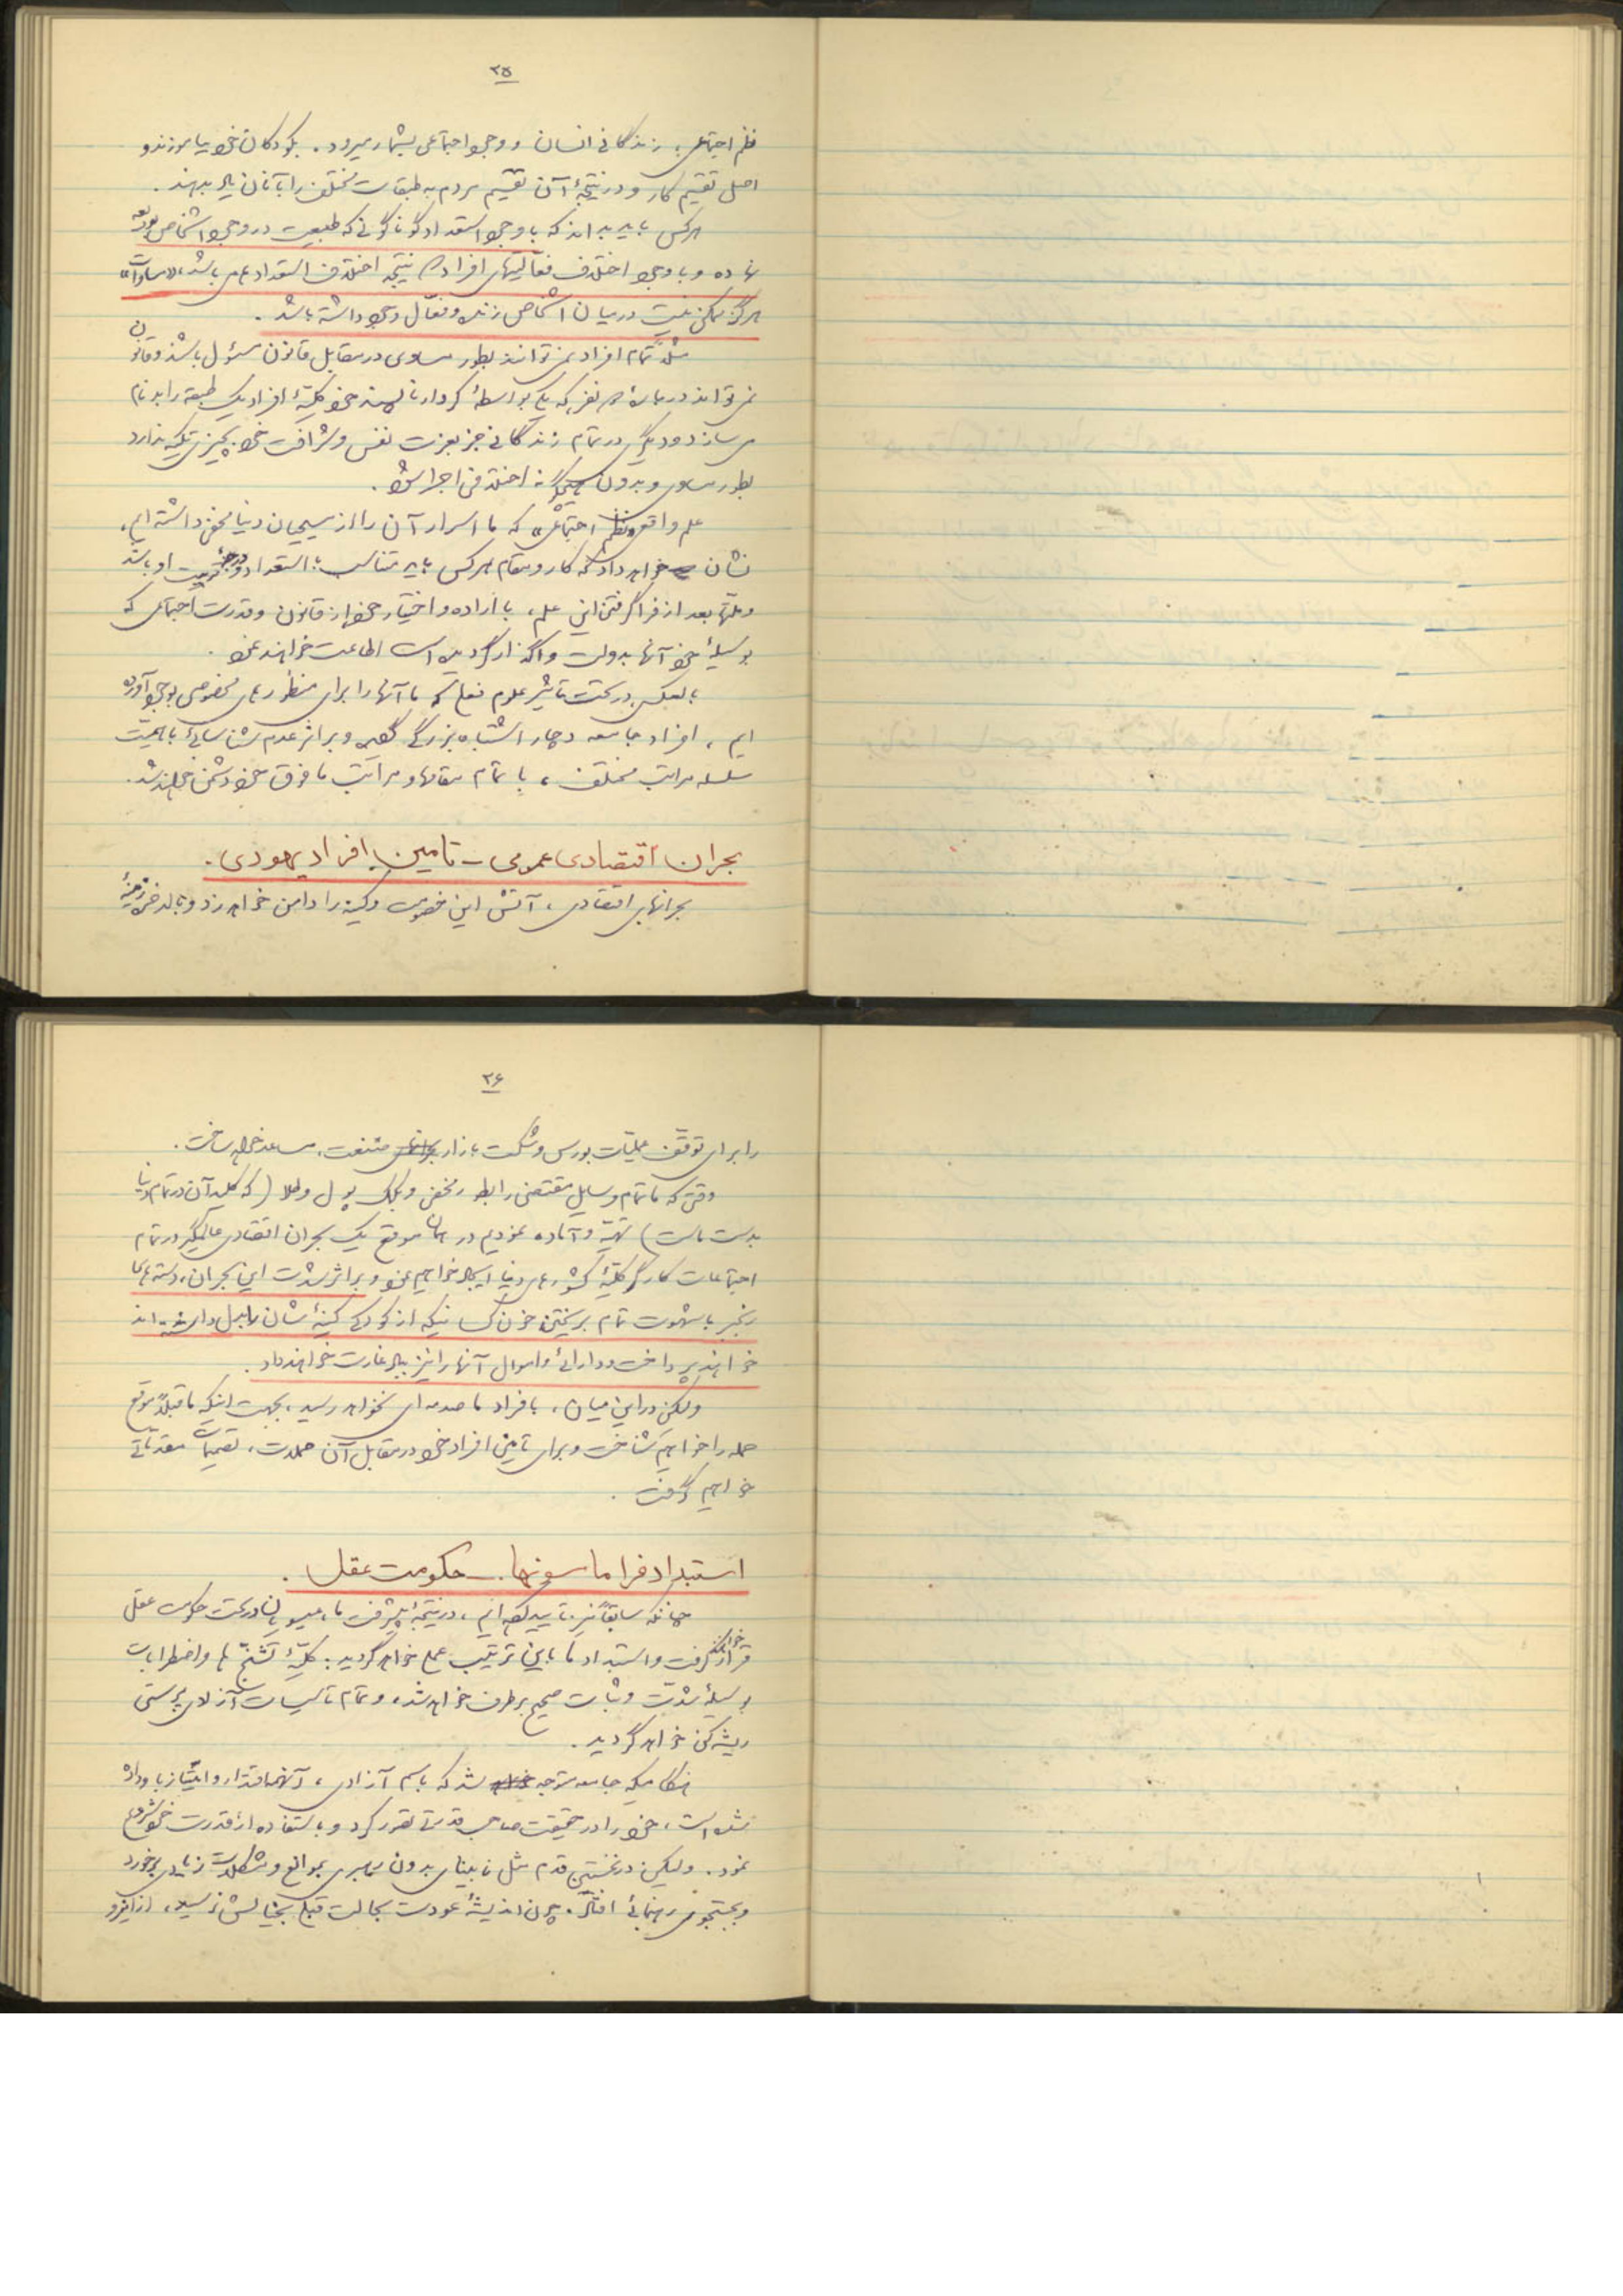 ۲۵
نظم اجتماعی، زندگانی انسان و وجود اجتماعی بشمار میرود. بکودکان خود بیاموزند و
اصل تقسیم کار و در نتیجهٔ آن تقسیم مردم به طبقات مختلف را بآنان یاد بدهند.
هرکس باید بداند که با وجود استعداد گوناگونی که طبیعت در وجود اشخاص بودیعه
نهاده و با وجود اختلاف فعالیتهای افراد که نتیجه اختلاف استعداد می باشد، «مساوات»
هرگز ممکن نیست در میان اشخاص زنده و فعّال وجود داشته باشد.
مثلاً تمام افراد نمی توانند بطور مساوی در مقابل قانون مسئول باشند و قانون
نمی تواند در باره دو نفر که یکی بواسطهٔ کردار ناپسند خود کلیّهٔ افراد یک طبقه را بدنام
می سازد و دیگری در تمام زندگانی جز بعزت نفس و شرافت خود بچیزی تکیه ندارد
بطور مساوی و بدون هیچگونه اختلافی اجرا شود.
علم واقعی نظم اجتماعی، که ما اسرار آن را از مسیحیان دنیا مخفی داشته ایم،
نشان خواهد داد که کار و مقام هرکس باید متناسب با استعداد و درجهٔ تربیت او باشد
و ملتها بعد از فراگرفتن این علم، با اراده و اختیار خود از قانون و قدرت اجتماعی که
بوسیلهٔ خود آنها بدولت واگذار گردیده است اطاعت خواهند نمود.
بالعکس در تحت تأثیر علوم فعلی که ما آنها را برای منظورهای مخصوصی بوجود آورده
ایم، افراد جامعه دچار اشتباه بزرگی گشته و بر اثر عدم شناسائی باهمیّت
سلسله مراتب مختلف، با تمام مقامها و مراتب مافوق خود دشمن خواهند شد.
بحران اقتصادی عمومی – تأمین افراد یهودی.
بحرانهای اقتصادی، آتش این خصومت و کینه را دامن خواهد زد و بالاخره زمینهٔ
۲۶
را برای توقّف عملیّات بورس و شکست بازار صنعت، مساعد خواهد ساخت.
وقتی که ما تمام وسایل مقتضی را بطور مخفی و بکمک پول و طلا (که کلید آن در تمام دنیا
بدست ماست) تهیّه و آماده نمودیم در همان موقع یک بحران اقتصادی عالمگیر در تمام
اجتماعات کارگر کلیّهٔ کشورهای دنیا ایجاد خواهیم نمود و بر اثر شدت این بحران، دسته های
رنجبر با شهوت تمام بریختن خون کسانیکه از کودکی کینهٔ شان را بدل داشته اند
خواهند پرداخت و دارائی و اموال آنها را نیز بباد غارت خواهند داد.
ولیکن در این میان، بافراد ما صدمه ای نخواهد رسید، بجهت اینکه ما قبلاً موقع
حمله را خواهیم شناخت و برای تأمین افراد خود در مقابل آن حملات، تصمیمات مقدماتی
خواهیم گرفت.
استبداد فراماسونها. – حکومت عقل.
چنانکه سابقاً نیز تأیید کرده ایم، در نتیجهٔ پیشرفت ما، عیسویان در تحت حکومت عقل
قرار خواهند گرفت و استبداد ما باین ترتیب عملی خواهد گردید: کلیّهٔ تشنّج ها و اضطرابات
بوسیلهٔ شدّت و ثبات صحیح برطرف خواهد شد، و تمام تأسیسات آزادی پرستی
ریشه کن خواهد گردید.
هنگامیکه جامعه متوجه شد که باسم آزادی، آنهمه اقتدار و امتیاز باو داده
شده است، خود را در حقیقت صاحب قدرت تصور کرد و باستفاده از قدرت خود شروع
نمود. ولیکن در نخستین قدم مثل نابینای بدون رهبری بموانع و مشکلات زیادی برخورد
و بجستجوی رهنمائی افتاد. چون اندیشهٔ عودت بحالت قبلی بخیالش نرسید، از اینرو